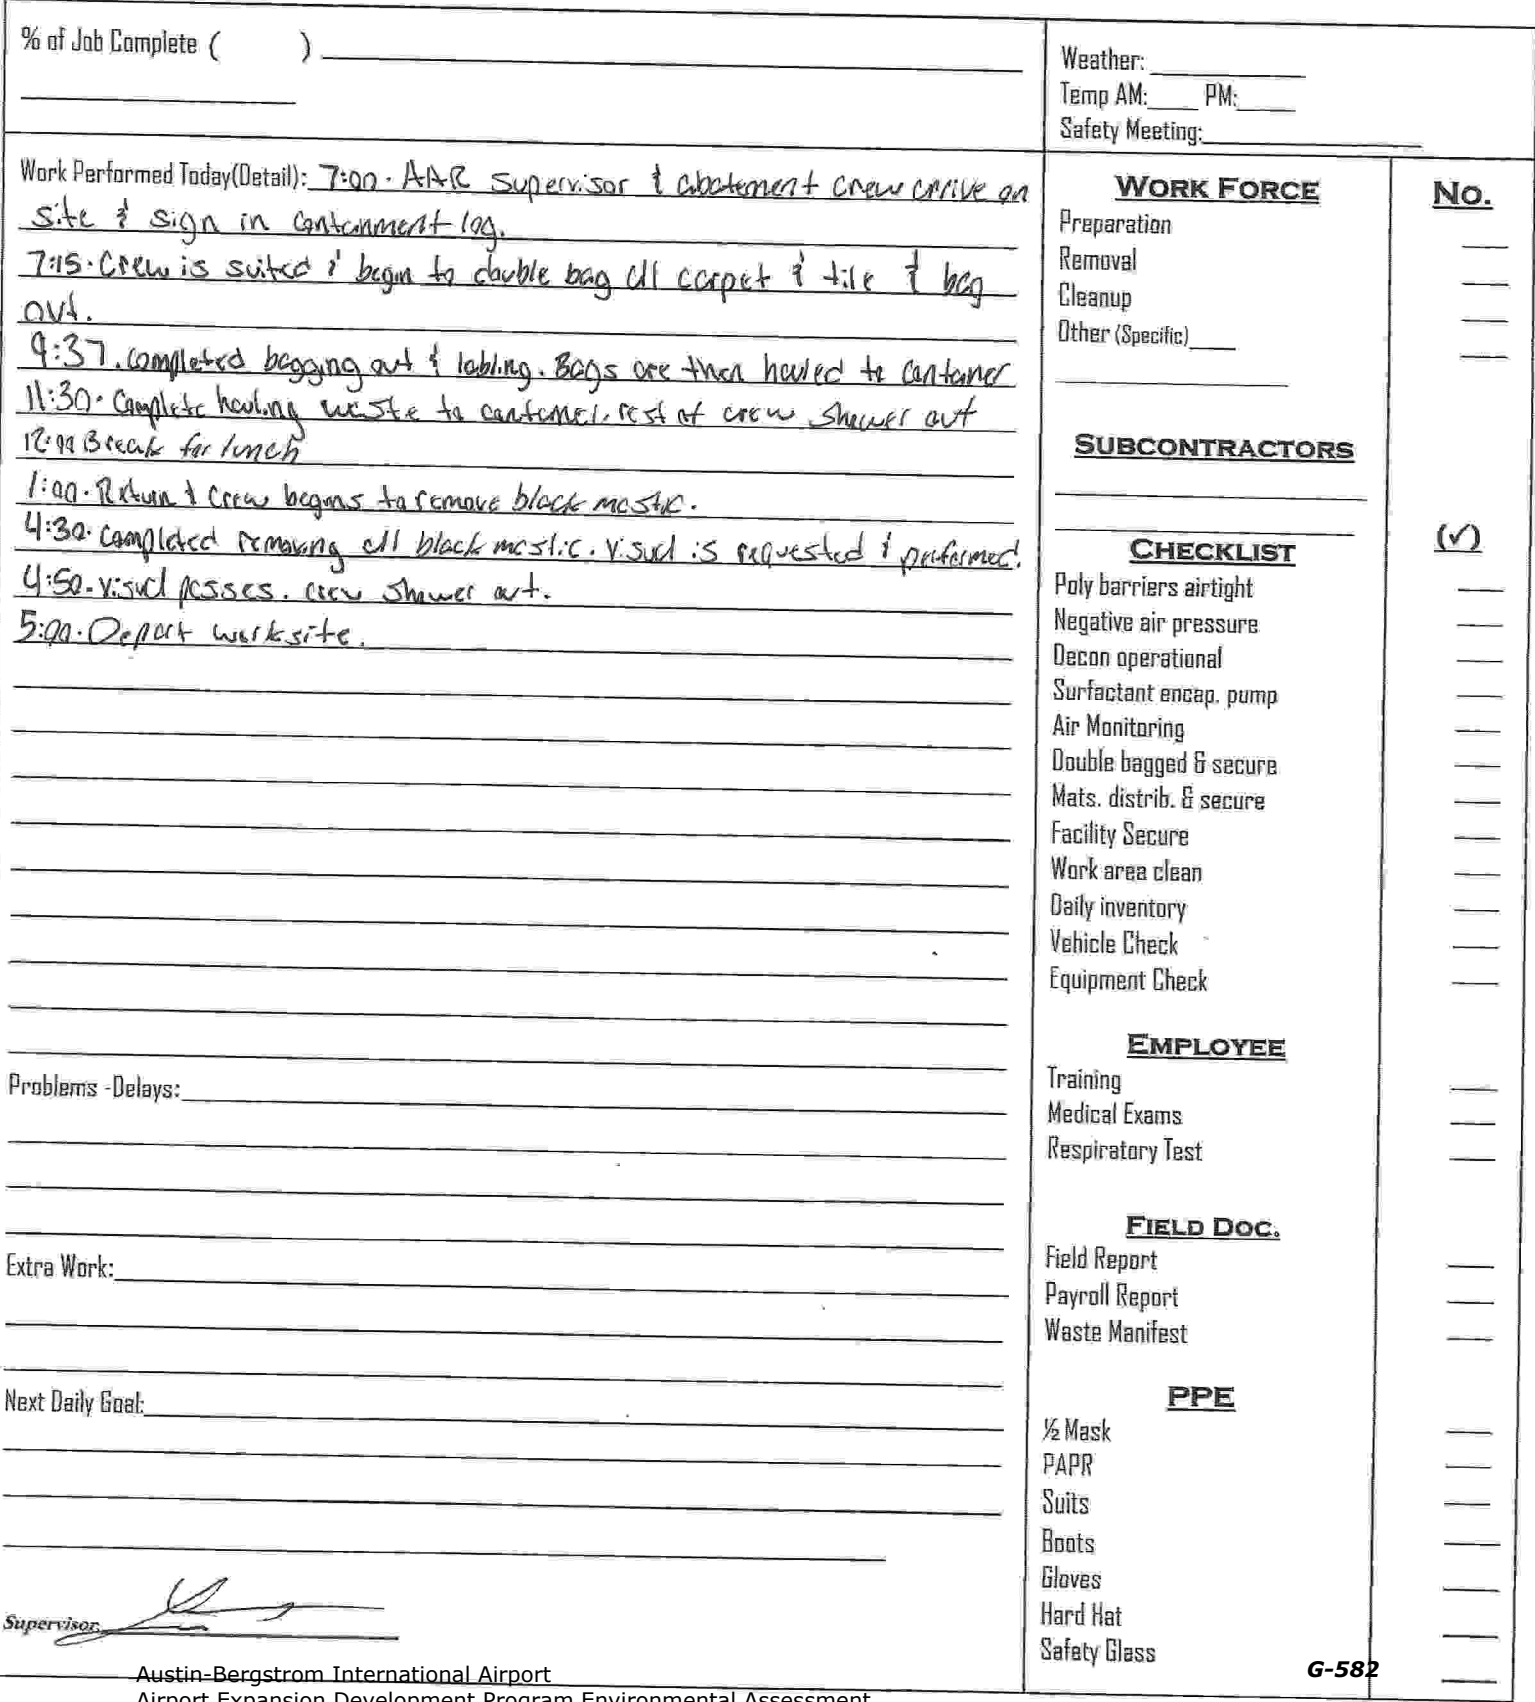 % of Job Complete ( )
Weather:
Temp AM: PM:
Safety Meeting:
Work Performed Today(Detail): 7:00. AAR Supervisor & abatement crew arrive on
site & sign in containment log.
7:15. Crew is suited & begin to double bag all carpet & tile & bag
out.
9:37. completed bagging out & labling. Bags are then hauled to container
11:30. Complete hauling waste to container. rest of crew shower out
12:00 Break for lunch
1:00. Return & crew begins to remove black mastic.
4:30. Completed removing all black mastic. visual is requested & performed.
4:50. visual passes. crew shower out.
5:00. Depart worksite.
Problems -Delays:
Extra Work:
Next Daily Goal:
Supervisor
WORK FORCE No.
Preparation
Removal
Cleanup
Other (Specific)
SUBCONTRACTORS
CHECKLIST (✓)
Poly barriers airtight
Negative air pressure
Decon operational
Surfactant encap. pump
Air Monitoring
Double bagged & secure
Mats. distrib. & secure
Facility Secure
Work area clean
Daily inventory
Vehicle Check
Equipment Check
EMPLOYEE
Training
Medical Exams
Respiratory Test
FIELD DOC.
Field Report
Payroll Report
Waste Manifest
PPE
½ Mask
PAPR
Suits
Boots
Gloves
Hard Hat
Safety Glass
G-582
Austin-Bergstrom International Airport
Airport Expansion Development Program Environmental Assessment